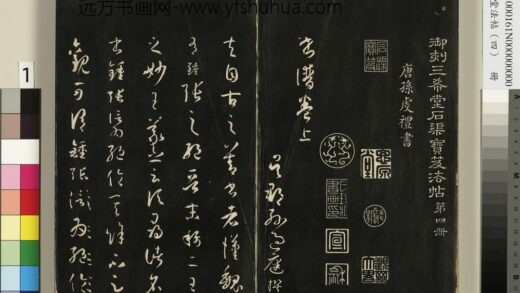 远方书画网-www.yfshuhua.com
堂法帖（四） 冊
御刻三希堂石渠寶笈法帖 第四冊
唐孫虔禮書
書譜卷上
吳郡孫過庭撰
夫自古之善書者漢魏
有鍾張之絕晉末稱二王
之妙王羲之云頃尋諸名
書鍾張信為絕倫其餘不足
觀可謂鍾張
1